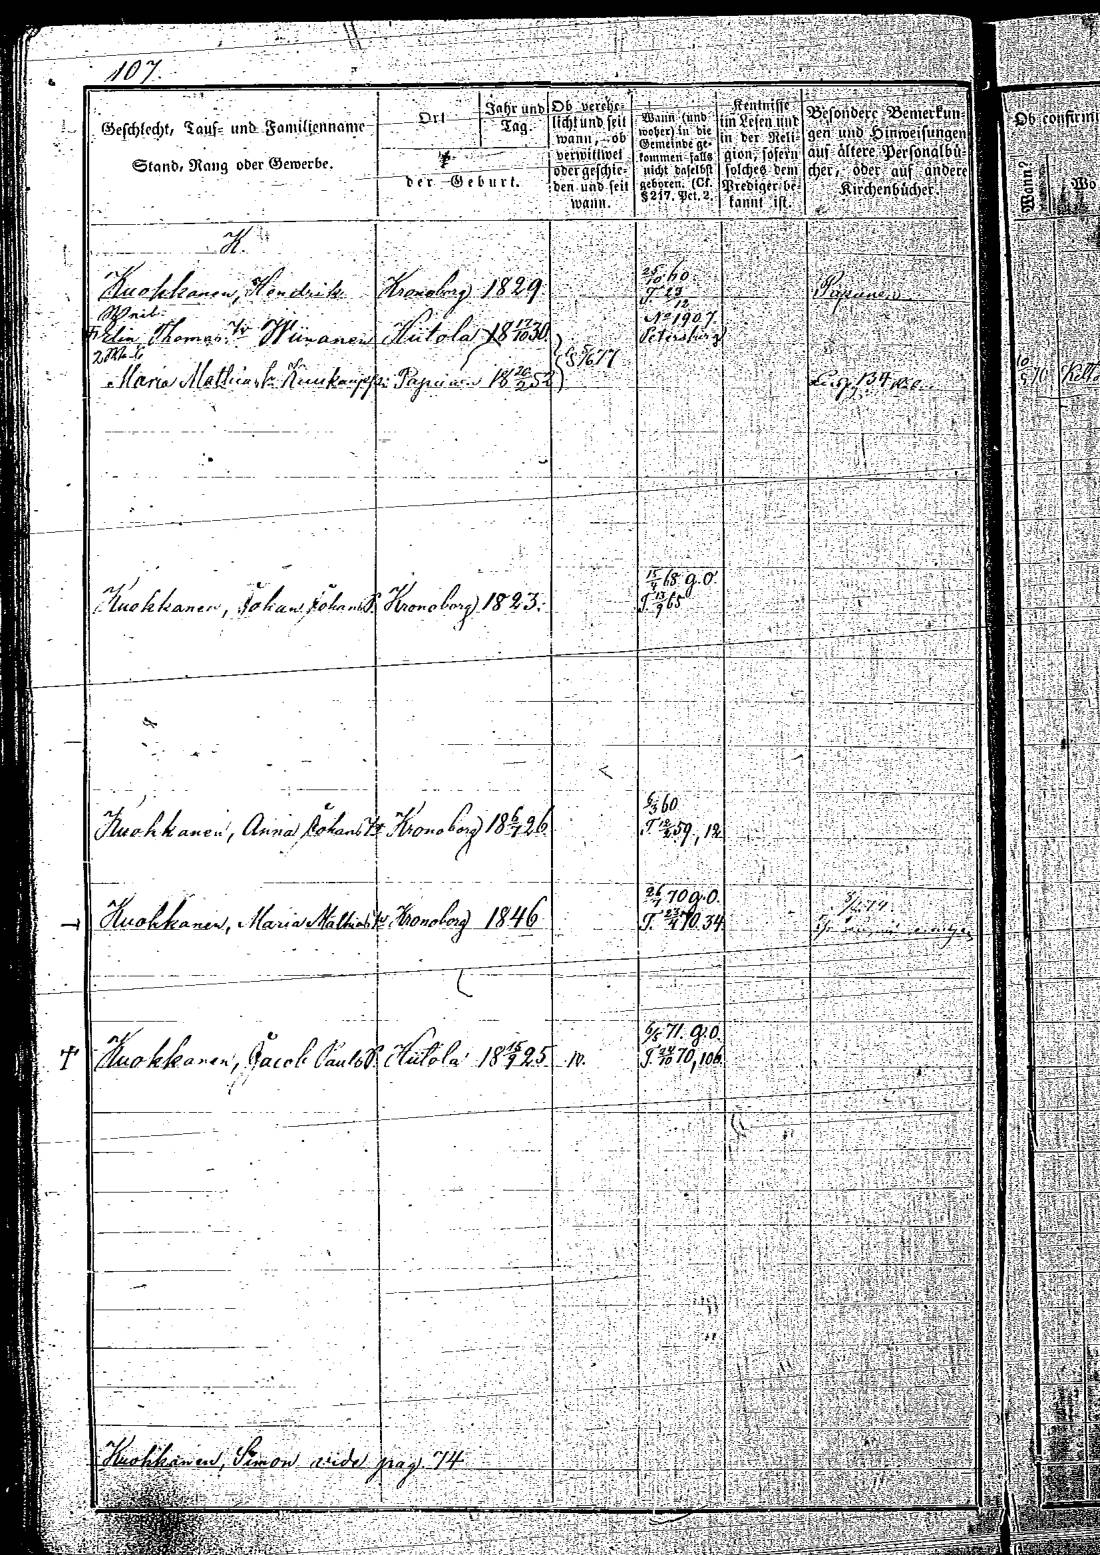 107.
Geschlecht, Tauf- und Familienname
Stand, Rang oder Gewerbe.
Ort
Jahr und
Tag.
der Geburt.
Ob verehe-
licht und seit
wann, ob
verwittwet
oder geschie-
den und seit
wann.
Wann (und
woher) in die
Gemeinde ge-
kommen falls
nicht daselbst
geboren. (Cf.
§ 217. Pct. 2.
Kentnisse
im Lesen und
in der Reli-
gion, sofern
solches dem
Prediger be-
kannt ist.
Besondere Bemerkun-
gen und Hinweisungen
auf ältere Personalbü-
cher, oder auf andere
Kirchenbücher.
Ob confirmi
Wann?
Wo
K.
Kuokkanen, Hendrik Kronoborg 1829 25/10 60
Papinen
Weib:
Elin Thomas Tr Hiiranen Hiitola 18 17/10 30. No 1907 Petersburg
2
Maria Mathias Tr Papinen 18 20/2 52
Kuokkanen, Johan Johans S. Kronoborg 1823. 15/4 68 g.o.
T. 13/9 65
Kuokkanen, Anna Johans Tr Kronoborg 18 6/7 26 6/3 60
T. 12/2 59, 12
Kuokkanen, Maria Mathias Tr Kronoborg 1846 26/7 70 g.o.
T. 23/4 70. 34
Kuokkanen, Jacob Pauls S. Hiitola 18 15/7 25 w. 6/5 71. g.o.
T. 28/10 70, 106
Kuokkanen, Simon vide pag. 74